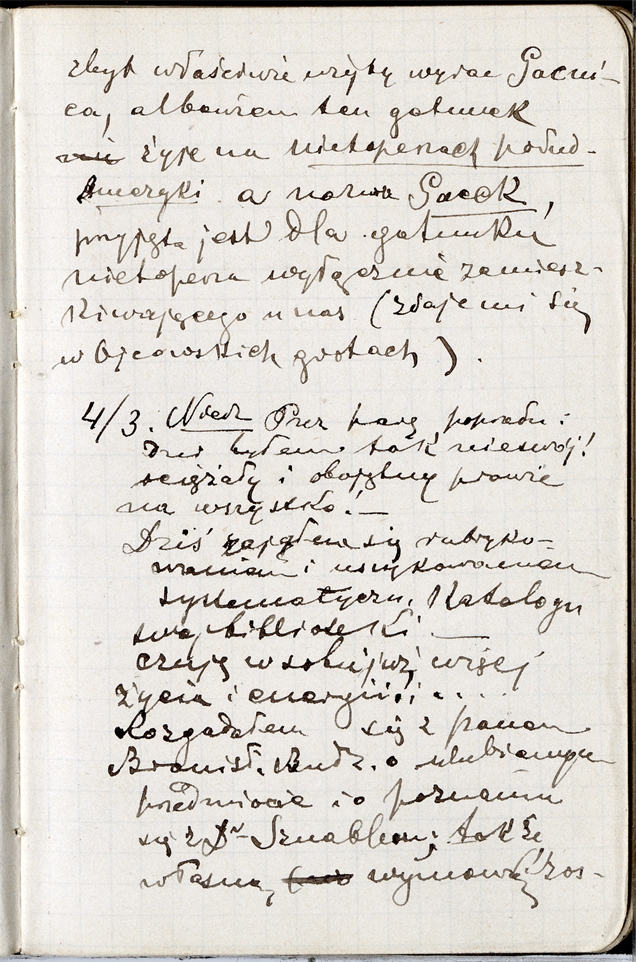 zbyt właściwie użyty wyraz Gacni-
ca, albowiem ten gatunek
żyje na nietoperzach połud-
Ameryki a nazwa Gacek,
przyjęta jest dla gatunku
nietoperza wyłącznie zamiesz-
kiwającego u nas (zdaje mi się
w Ojcowskich grotach).
4/3. Niedz Prez parę poprzedn:
dni byłem tak nieswój!
ociężały i obojętny prawie
na wszystko! —
Dziś zająłem się rubryko-
waniem i uszykowaniem
systematyczn. Katalogu
swej biblioteki —
czuję w sobie już więcej
życia i energii! ....
Rozgadałem się z panem
Bronisł. Rudz. o ulubionym
przedmiocie i o poznaniu
się z Dr Sznablem; także
własną, wymową zos-